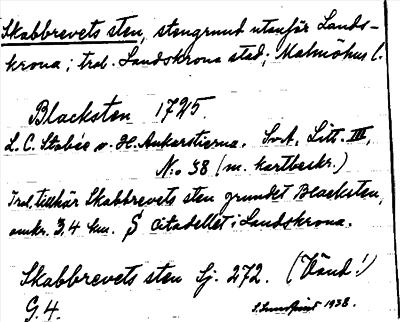 Skabbrevets sten, stengrund utanför Lands-
krona; trol. Landskrona stad; Malmöhus l.
Blacksten 1725.
L. C. Stobée o. H. Ankarstierna. SvA, Litt. III,
N:o 38 (m. kartbeskr.)
Trol. tillhör Skabbrevets sten grundet Blacksten,
omkr. 3,4 km. S citadellet i Landskrona.
Skabbrevets sten Sj. 272. (Vänd!)
G. 4.
S. Lundqvist 1938.